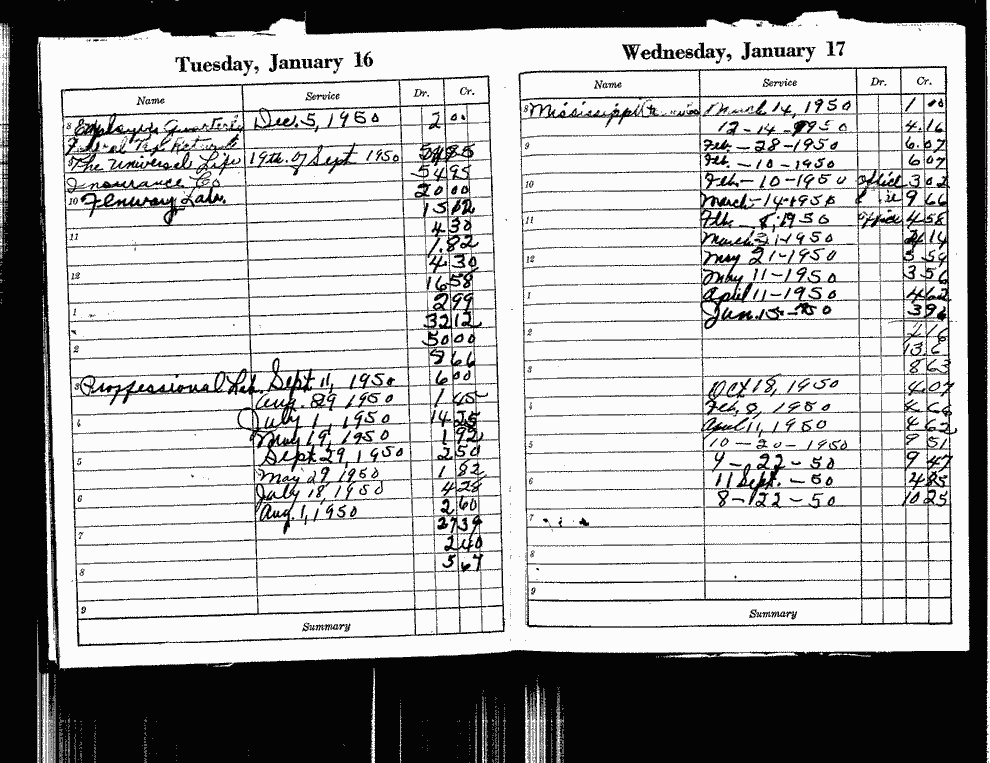 Tuesday, January 16
Name Service Dr. Cr.
8 Employers Quarterly Dec. 5, 1950 2 00
Federal Tax Return
9 The Universal Life 19th. of Sept 1950 54 95
Insurance Co 54 95
10 Fenway Lab. 20 00
15 12
11 4 30
1.82
4 30
12 16 58
2 99
1 32 12
50 00
2 8 66
3 Proffessional Lab. Sept 11, 1950 6 00
Aug. 29 1950 1 45
4 July 1, 1950 14 25
May 19, 1950 1 92
5 Sept 29, 1950 2 50
May 29 1950 1 82
6 July 18, 1950 4 28
Aug. 1, 1950 2 60
27 39
7 2 40
8 5 67
9
Summary
Wednesday, January 17
Name Service Dr. Cr.
8 Mississippi March 14, 1950 1 00
12-14-1950 4.16
9 Feb. - 28-1950 6.07
Feb. - 10-1950 6 07
10 Feb. - 10-1950 office 3 02
March - 14-1950 9 66
11 Feb. 8, 1950 office 4 58
March 21-1950 14
12 May 21-1950 3 59
May 11-1950 3 56
1 April 11-1950 4 62
Jan. 15-50 39
2
13.6
3 8 63
Oct 18, 1950 4.07
4 Feb. 8, 1950 4 66
April 11, 1950 4 62
5 10-20-1950 9 51
9-22-50 9 47
6 11 Sept. - 50 4 85
8-22-50 10 25
7
8
9
Summary